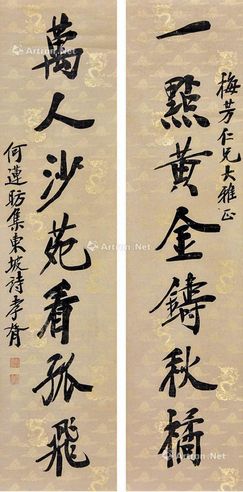 梅芳仁兄大雅正
一點黃金鑄秋橘
萬人沙苑看孤飛
何蓮昉集東坡詩孝胥
Artron.Net